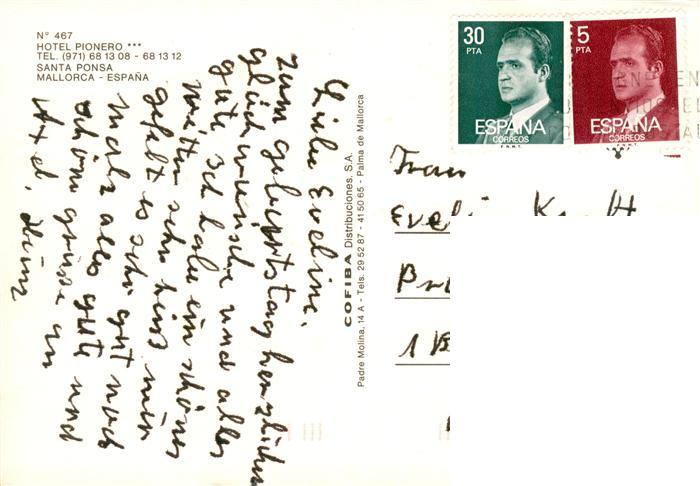 N° 467
HOTEL PIONERO ***
TEL. (971) 68 13 08 - 68 13 12
SANTA PONSA
MALLORCA - ESPAÑA
Liebe Eveline.
zum geburtstag herzlichen
glückwünsche und alles
gute ich habe ein schönes
wetter sehr heiss mir
gefält es sehr gut noch
mals alles gute und
schöne grüsse
Axel, Heinz
COFIBA Distribuciones, S.A.
Padre Molina, 14 A - Tels. 29 52 87 - 41 50 65 - Palma de Mallorca
30
PTA
ESPAÑA
CORREOS
F.N.M.T.
5
PTA
ESPAÑA
CORREOS
F.N.M.T.
Frau